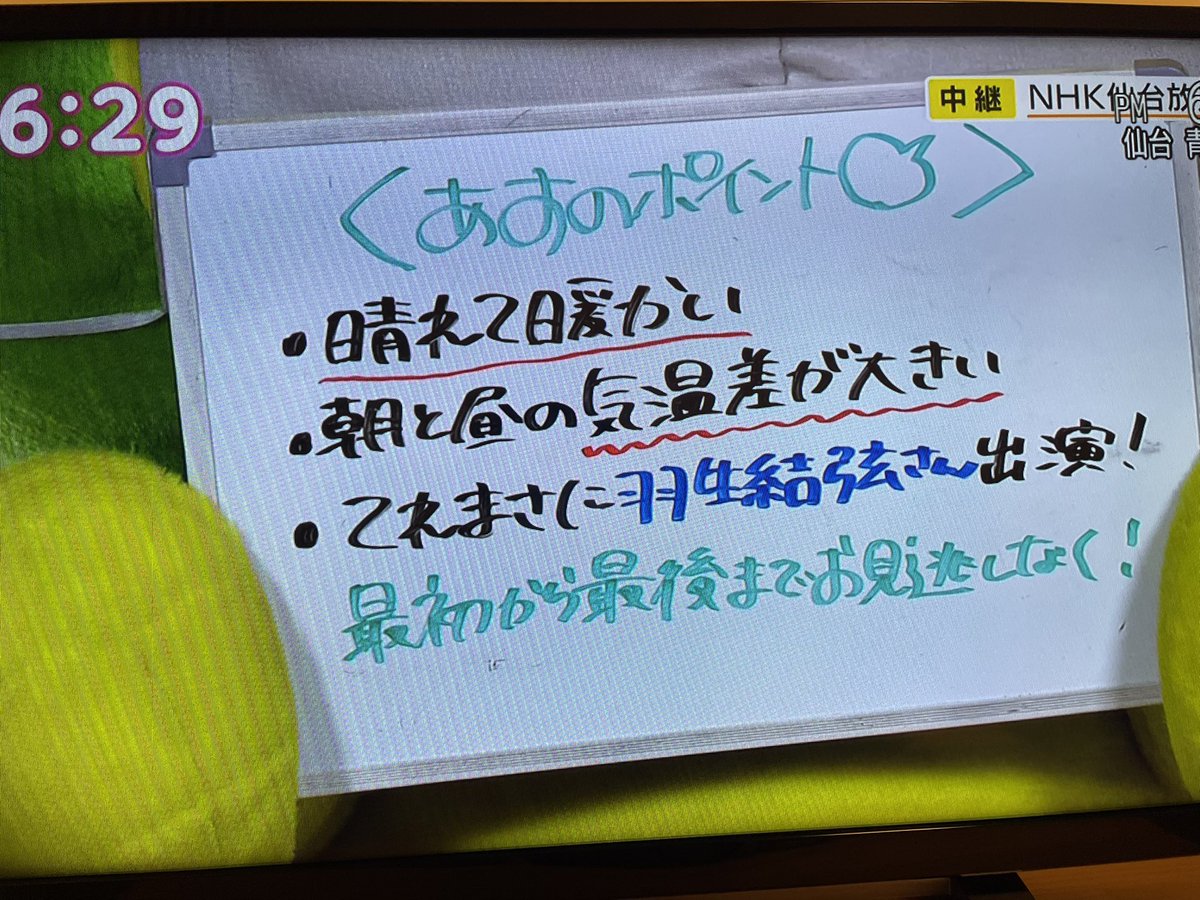 6:29
中継 NHK仙台放
PM 6
仙台 青
＜あすのポイント＞
・晴れて暖かい
・朝と昼の気温差が大きい
・てれまさに羽生結弦さん出演！
最初から最後までお見逃しなく！